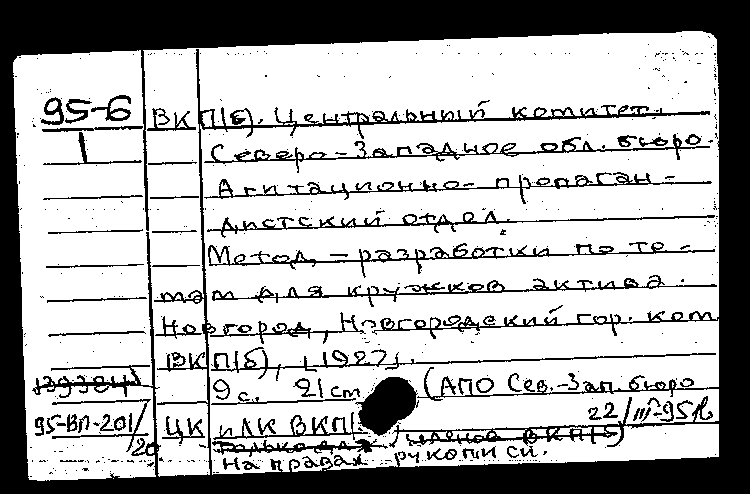 95-6
1
ВКП(б). Центральный комитет.
Северо-Западное обл. бюро.
Агитационно-пропаган-
дистский отдел.
Метод.-разработки по те-
мам для кружков актива.
Новгород, Новгородский гор. ком
ВКП(б), [1927].
139384
9 с. 21 cm (АПО Сев.-Зап. бюро
95-ВП-201/20
ЦК и ЛК ВКП(
22/III-95
Только для членов ВКП(б)
На правах рукописи.